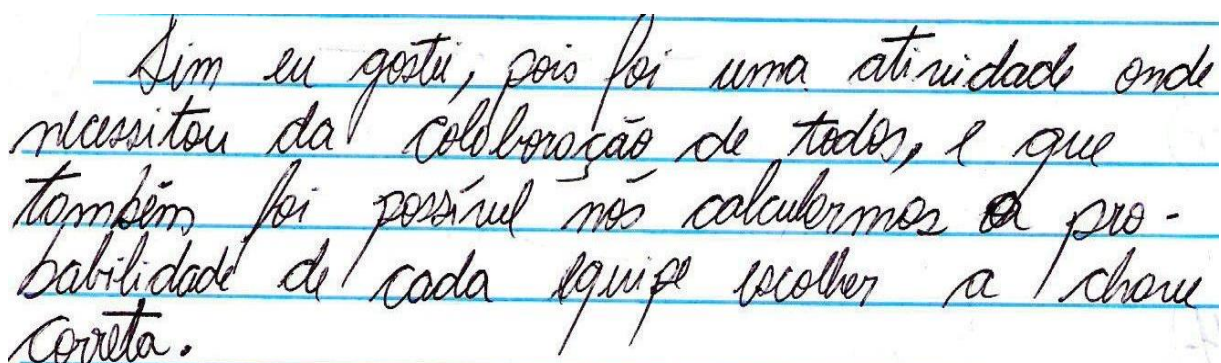 Sim eu gostei, pois foi uma atividade onde
necessitou da colaboração de todos, e que
também foi possível nós calcularmos a pro-
babilidade de cada equipe escolher a chave
correta.